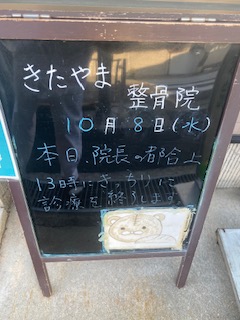 きたやま
整骨院
10月8日(水)
本日、院長の都合上
13時にきっちりに
診療を終了します